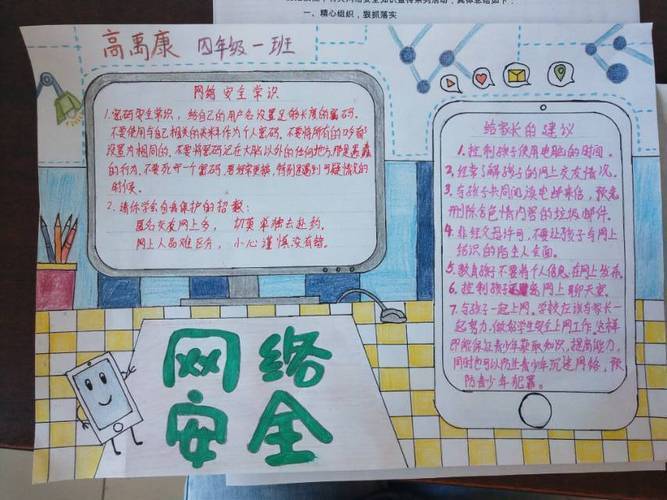 一、精心组织，狠抓落实
高禹康 四年级一班
网络安全常识
1.密码安全常识，给自己的用户名设置足够长度的密码。
不要使用与自己相关的资料作为个人密码。不要将所有的口令都
设置为相同的，不要将密码记在大脑以外的任何地方,那是愚蠢
的行为，不要死守一个密码，要经常更换，特别是遇到可疑情况的
时候。
2.请你学会自我保护的招数：
匿名交友网上多， 切莫单独去赴约。
网上人品难区分， 小心谨慎没有错。
给家长的建议
1.控制孩子使用电脑的时间。
2.经常了解孩子的网上交友情况。
3.与孩子共同阅读电邮来信，预先
删除色情内容的垃圾邮件。
4.非经父母许可，不要让孩子与网上
结识的陌生人会面。
5.教育孩子不要将个人信息在网上发布。
6.控制孩子进入网上聊天室。
7.与孩子一起上网。学校应该与家长一
起努力，做好学生安全上网工作，这样
即能保证青少年获取知识，提高能力，
同时也可以防止青少年沉迷网络，预
防青少年犯罪。
网络
安全